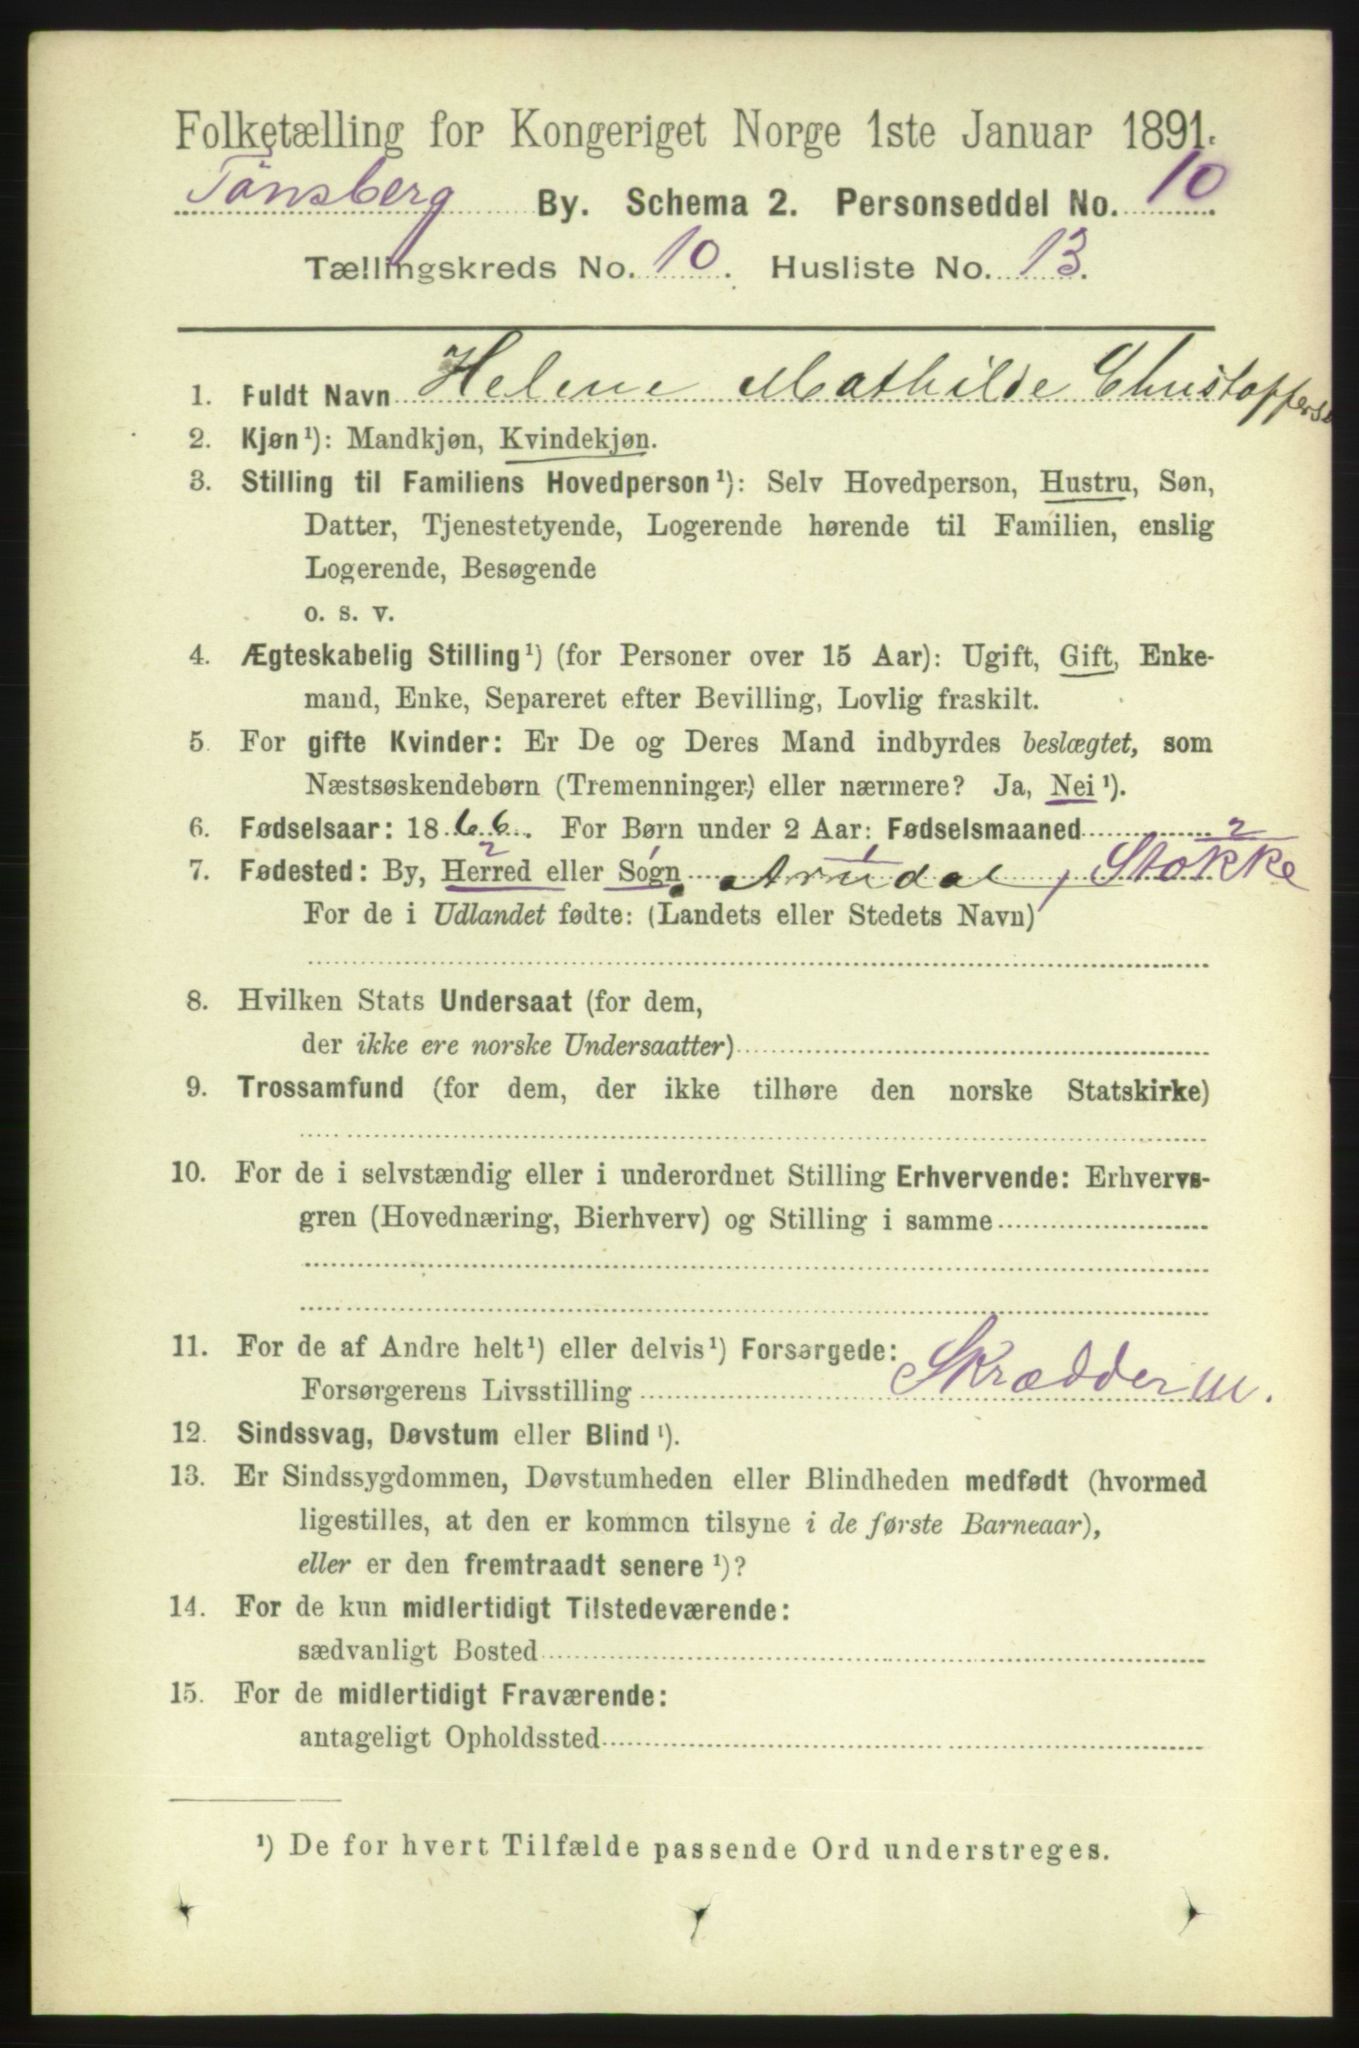 Folketælling for Kongeriget Norge 1ste Januar 1891.
Tønsberg By. Schema 2. Personseddel No. 10
Tællingskreds No. 10. Husliste No. 13.
1. Fuldt Navn Helene Mathilde Christoffersen
2. Kjøn¹): Mandkjøn, Kvindekjøn.
3. Stilling til Familiens Hovedperson¹): Selv Hovedperson, Hustru, Søn,
Datter, Tjenestetyende, Logerende hørende til Familien, enslig
Logerende, Besøgende
o. s. v.
4. Ægteskabelig Stilling¹) (for Personer over 15 Aar): Ugift, Gift, Enke-
mand, Enke, Separeret efter Bevilling, Lovlig fraskilt.
5. For gifte Kvinder: Er De og Deres Mand indbyrdes beslægtet, som
Næstsøskendebørn (Tremenninger) eller nærmere? Ja, Nei¹).
6. Fødselsaar: 1866. For Børn under 2 Aar: Fødselsmaaned
2 1 1 2
7. Fødested: By, Herred eller Sogn Arndal, Stokke
For de i Udlandet fødte: (Landets eller Stedets Navn)
8. Hvilken Stats Undersaat (for dem,
der ikke ere norske Undersaatter)
9. Trossamfund (for dem, der ikke tilhøre den norske Statskirke)
10. For de i selvstændig eller i underordnet Stilling Erhvervende: Erhvervs-
gren (Hovednæring, Bierhverv) og Stilling i samme
11. For de af Andre helt¹) eller delvis¹) Forsørgede:
Forsørgerens Livsstilling Skrædder m.
12. Sindssvag, Døvstum eller Blind¹).
13. Er Sindssygdommen, Døvstumheden eller Blindheden medfødt (hvormed
ligestilles, at den er kommen tilsyne i de første Barneaar),
eller er den fremtraadt senere¹)?
14. For de kun midlertidigt Tilstedeværende:
sædvanligt Bosted
15. For de midlertidigt Fraværende:
antageligt Opholdssted
¹) De for hvert Tilfælde passende Ord understreges.